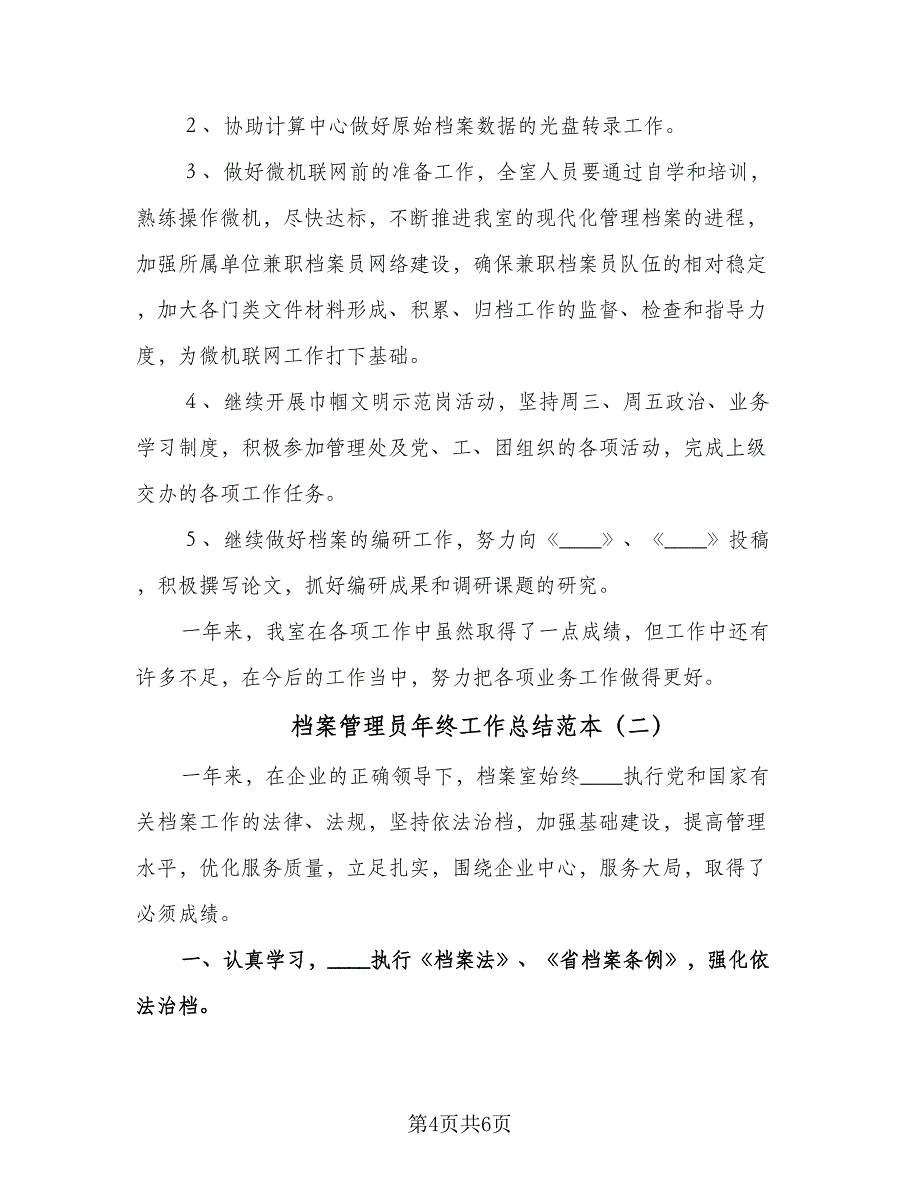 2、协助计算中心做好原始档案数据的光盘转录工作。
3、做好微机联网前的准备工作，全室人员要通过自学和培训，
熟练操作微机，尽快达标，不断推进我室的现代化管理档案的进程，
加强所属单位兼职档案员网络建设，确保兼职档案员队伍的相对稳定
，加大各门类文件材料形成、积累、归档工作的监督、检查和指导力
度，为微机联网工作打下基础。
4、继续开展巾帼文明示范岗活动，坚持周三、周五政治、业务
学习制度，积极参加管理处及党、工、团组织的各项活动，完成上级
交办的各项工作任务。
5、继续做好档案的编研工作，努力向《____》、《____》投稿
，积极撰写论文，抓好编研成果和调研课题的研究。
一年来，我室在各项工作中虽然取得了一点成绩，但工作中还有
许多不足，在今后的工作当中，努力把各项业务工作做得更好。
档案管理员年终工作总结范本（二）
一年来，在企业的正确领导下，档案室始终____执行党和国家有
关档案工作的法律、法规，坚持依法治档，加强基础建设，提高管理
水平，优化服务质量，立足扎实，围绕企业中心，服务大局，取得了
必须成绩。
一、认真学习，____执行《档案法》、《省档案条例》，强化依
法治档。
第4页共6页